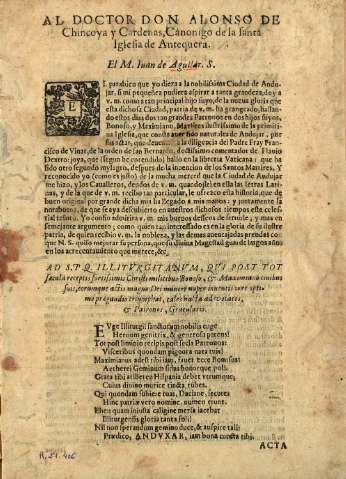 AL DOCTOR DON ALONSO DE
Chincoya y Cardenas, Canonigo de la santa
Iglesia de Antequera.
El M. Iuan de Aguilar. S.
EL parabien que yo diera a la nobilissima Ciudad de Andu-
jar, si mi pequeñez pudiera aspirar a tanta grandeza, doy a
v. m. como a tan principal hijo suyo, de la nueva gloria que
esta dichosa Ciudad, patria de v. m. ha grangeado, hallan-
do estos dias dos tan grandes Patrones en dos hijos suyos,
Bonoso, y Maximiano, Martires ilustrissimos de la primiti-
va Iglesia, que consta aver sido naturales de Andujar, por
sus actas, que devemos a la diligencia del Padre Fray Fran-
cisco de Vivar, de la orden de san Bernardo, doctissimo comentador de Flavio
Dextro: joya, que (segun he entendido) hallo en la libreria Vaticana: que ha
sido otro segundo milagro, despues de la invencion de los Santos Martires. Y
reconocido yo (como es justo) de la mucha merced que la Ciudad de Andujar
me hizo, y los Cavalleros, deudos de v. m. quando lei en ella las letras Lati-
nas, y de la que de v. m. recibo tan particular, le ofrezco esta historia, que de
buen original por grande dicha mia ha llegado a mis manos: y juntamente la
norabuena, de que se aya descubierto en nuestros dichosos tiempos este celes-
tial tesoro. Yo consio
semejante argumento; como quien tan interessado es en la gloria de su ilustre
patria, de quien recibio v. m. la nobleza, y las demas aventajadas prendas con
que N. S. quiso mejorar su persona, que su divina Magestad guarde largos años
en los acrecentamientos que merece, &c.
AD S.P.Q. ILLITVRGITANVM, QVI POST TOT
sæcula receptis fortissimis Christi militibus Bonoso, & Maximiano civibus
suis, eorumque actis nuper Dei munere inventis iure opti-
mo præ gaudio triumphat, tales hucta
& Patrones, Gratularis.
EVge Illiturgi sanctorum nobilis ergo
Heroum genitrix, & generosa parens!
Tot post lustra receptis post secla Patronos:
Visceribus quondam pignora nata tuis!
Maximianus adest tibi iam, favet ecce Bonosus
Aetherei Geminum sidus honorque poli.
Grata tibi attleret Hispania debet utrumque,
Cuius divino murice tincta rubes.
Qui quondam subiere tuas, Daciane, secures
Hinc patriæ vero nomine, numen erunt.
Eheu quam iniusta caligine mersa iacebat
Illiturgensis gloria tanta soli!
Nil non sperandum gemino duce, & auspice tali:
Prædico, ANDVXAR, iam bona cuncta tibi.
ACTA